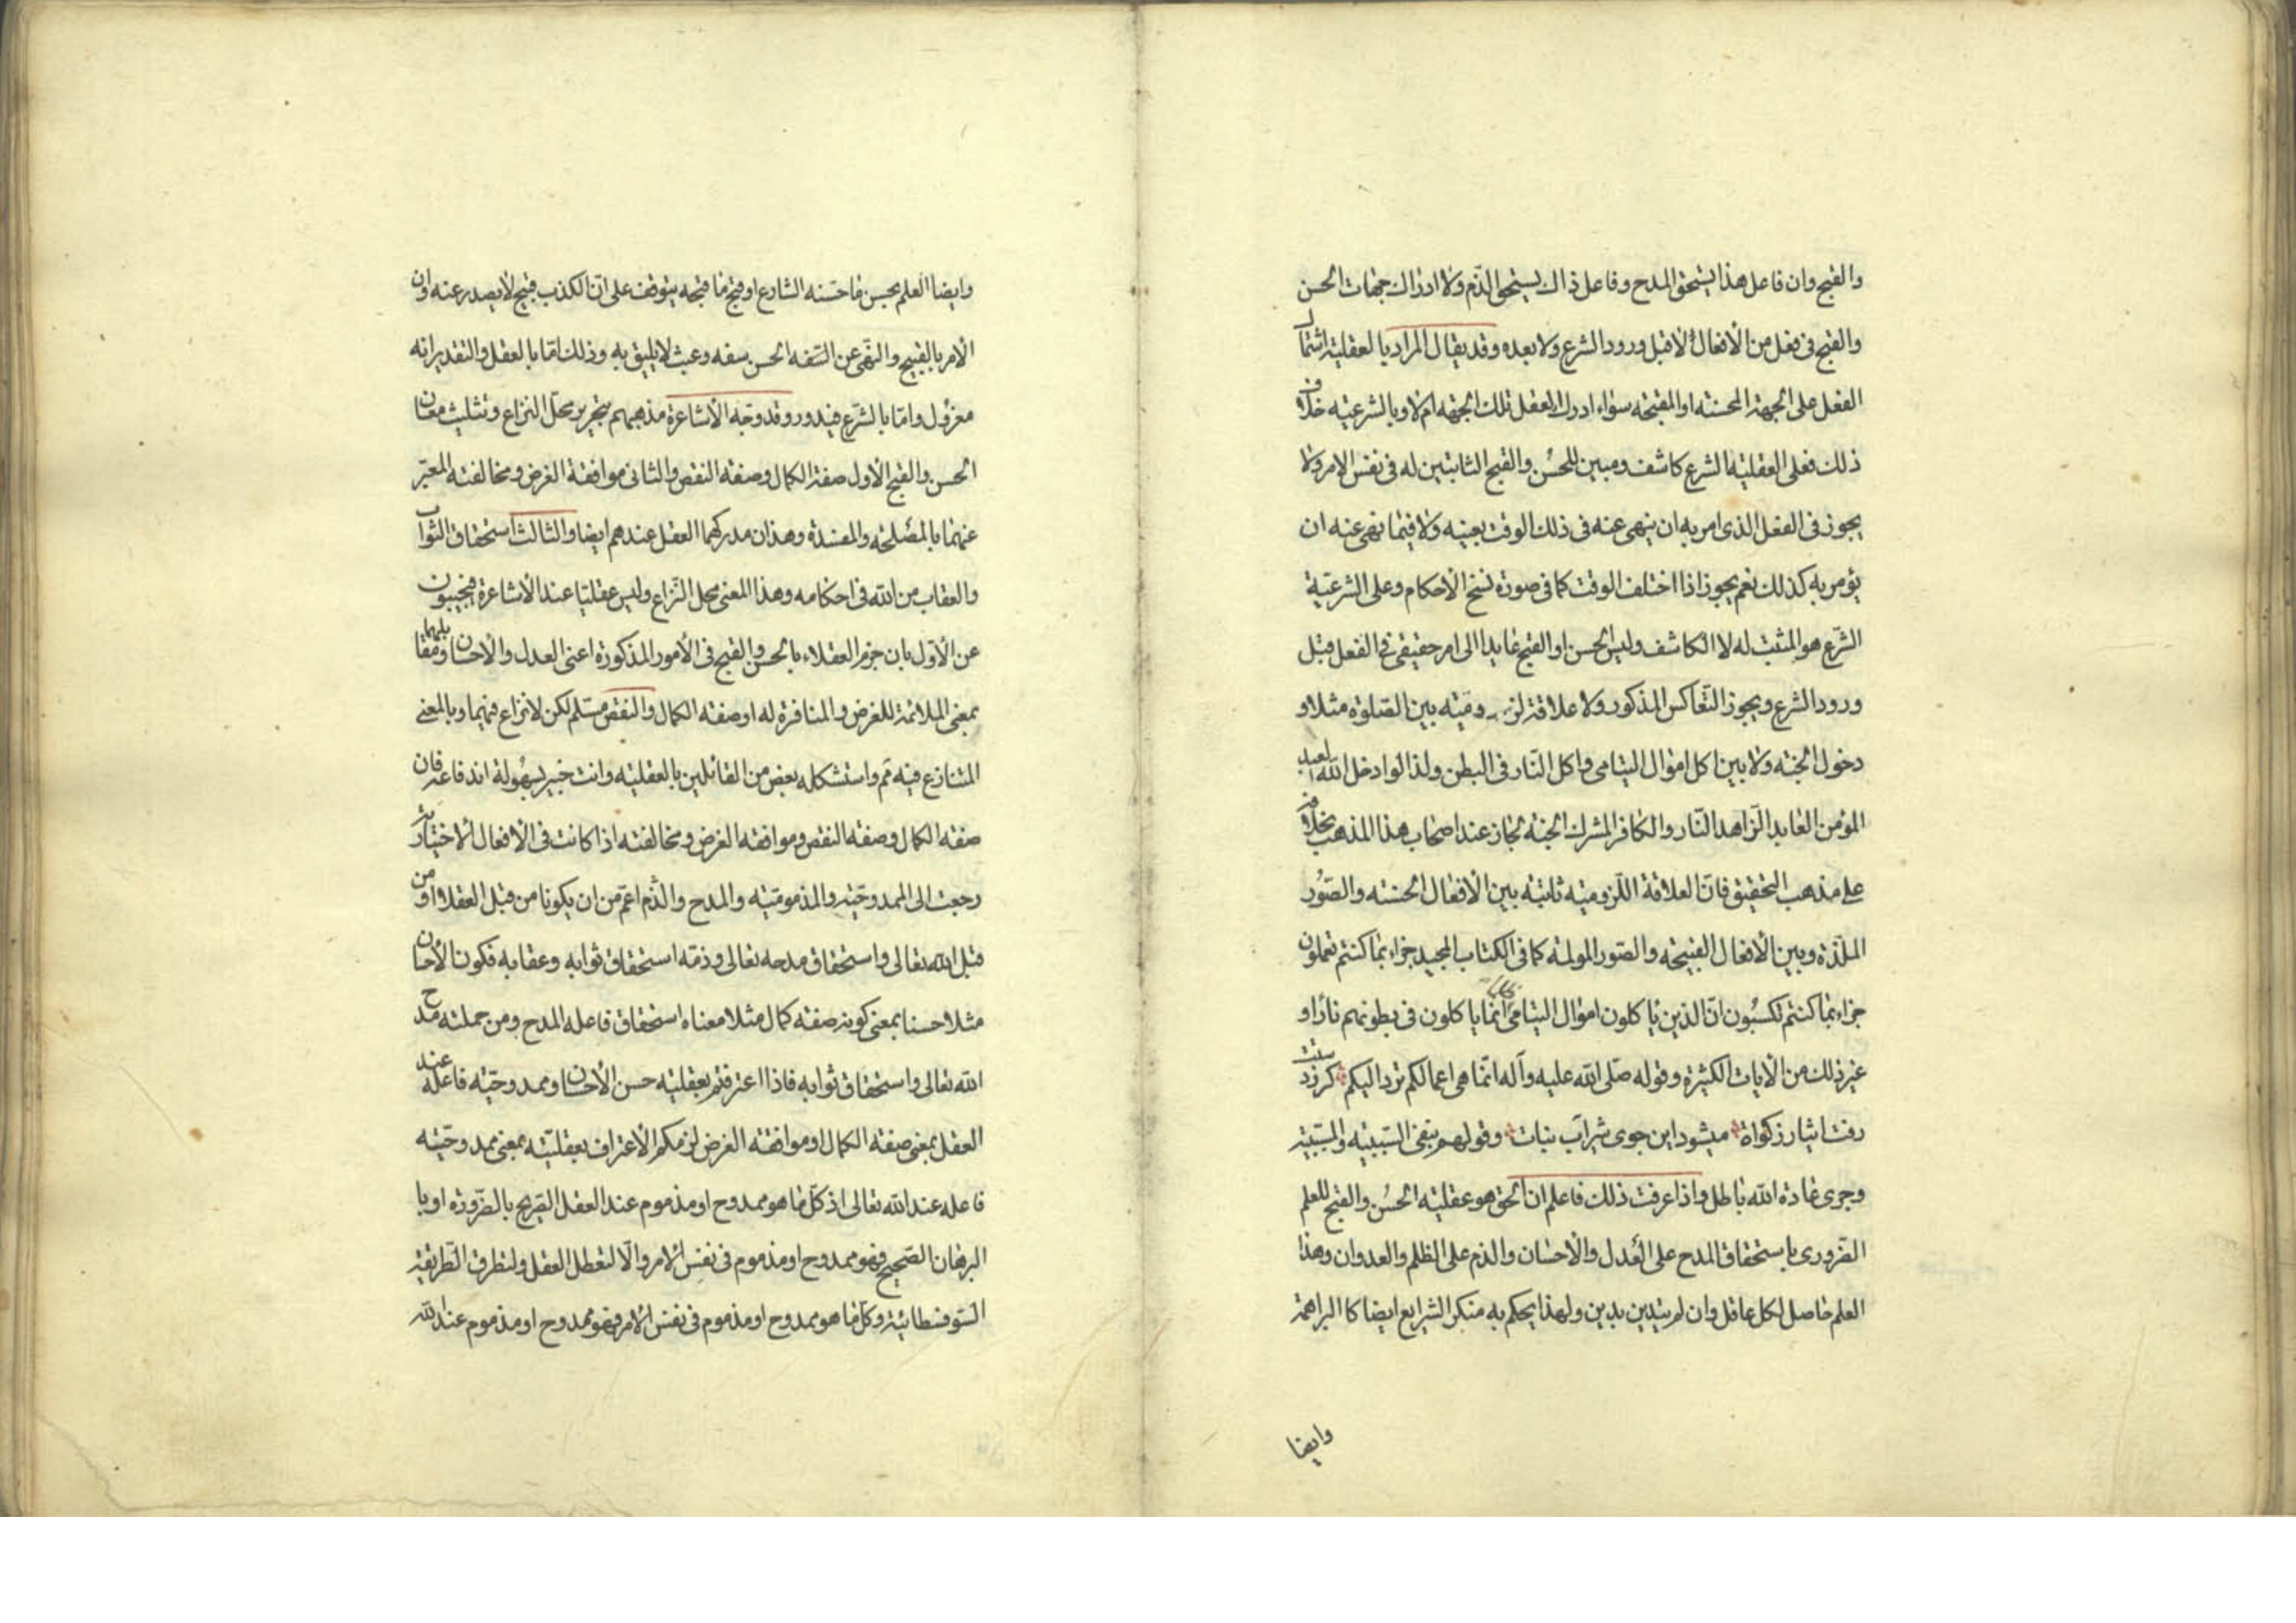 والقبح وان فاعل هذا يستحق المدح وفاعل ذاك يستحق الذّم ولا ادراك جهات الحسن
والقبح فى فعل من الأفعال لا قبل ورود الشرع ولا بعده وقد يقال المراد بالعقلية اشتمال
الفعل على الجهة المحسنة او المقبحة سواء ادرك العقل تلك الجهة ام لا وبالشرعية خلاف
ذلك فعلى العقلية الشرع كاشف ومبين للحسُن والقبح الثابتين له فى نفس الامر ولا
يجوز فى الفعل الذى امر به ان ينهى عنه فى ذلك الوقت بعينه ولا فيما نهى عنه ان
يؤمر به كذلك نعم يجوز اذا اختلف الوقت كما فى صورة نسخ الأحكام وعلى الشرعيّة
الشّرع هو المثبت له لا الكاشف وليس الحسن او القبح عايدا الى امر حقيقى فى الفعل قبل
ورود الشرع ويجوز التّعاكس المذكور ولا علاقة لزوميّة بين الصّلوة مثلا و
دخول الجنة ولا بين اكل اموال اليتامى واكل النّار فى البطن ولذا لو ادخل الله العبد
المؤمن العابد الزّاهد النّار والكافر المشرك الجنة لجاز عند اصحاب هذا المذهب بخلافه
على مذهب التحقيق فانّ العلاقة اللّزومية ثابتة بين الأفعال الحسنة والصّور
الملذّة وبين الأفعال القبيحة والصّور المولمة كما فى الكتاب المجيد جزاء بما كنتم تعملون
جزاء بما كنتم تكسبُون انّ الذين ياكلون اموال اليتامى ظلما انّما ياكلون فى بطونهم نارًا و
غير ذلك من الآيات الكثيرة وقوله صلّى الله عليه وآله انّما هى اعمالكم تردّ اليكم كر زدستت
رفت ايثار زكواة ميشود اين جوى شير آب نبات وقولهم بنفى السّببية والمسبّبية
وجرى عادة الله باطل واذا عرفت ذلك فاعلم ان الحق هو عقلية الحسُن والقبح للعلم
الضّرورى باستحقاق المدح على العَدل والاحسان والذم على الظلم والعدوان وهذا
العلم حاصل لكل عاقل وان لم يتدين بدين ولهذا يحكم به منكر الشرايع ايضا كا البراهمة
وايضا
وايضا العلم بحسن ما حسّنه الشارع او قبح ما قبحه يتوقف على انّ الكذب قبيح لا يصدر عنه وان
الأمر بالقبيح والنّهى عن السّفه الحسن سفه وعبث لا يليق به وذلك امّا بالعقل والتقدير انّه
معزول وامّا بالشّرع فيدور وقد وجّه الأشاعرة مذهبهم بتحرير محلّ النزاع وتثليث معان
الحسن والقبح الأول صفة الكمال وصفة النقص والثانى موافقة الغرض ومخالفته المعبّر
عنهما بالمصلحة والمفسدة وهذان مدركهما العقل عندهم ايضا والثالث استحقاق الثواب
والعقاب من الله فى احكامه وهذا المعنى محل النّزاع وليس عقليّا عند الأشاعرة فيجيبون
عن الأوّل بان جزم العقلاء بالحسن والقبح فى الأمور المذكورة اعنى العدل والأحسان ومقابليهما
بمعنى الملائمة للغرض والمنافرة له او صفة الكمال والنقص مسلّم لكن لا نزاع فيهما وبالمعنى
المتنازع فيه مَم واستشكله بعض من القائلين بالعقلية وانت خبير بسهُولة اندفاعه فان
صفة الكمال وصفة النقص وموافقة الغرض ومخالفته اذا كانت فى الأفعال الاختيارية
رجعت الى الممدوحيّة والمذمومّية والمدح والذّم اعمّ من ان يكونا من قبل العقلا او من
قبل الله تعالى واستحقاق مدحه تعالى وذمّه استحقاق ثوابه وعقابه فكون الأحسان
مثلا حسنا بمعنى كونه صفة كمال مثلا معناه استحقاق فاعله المدح ومن جملته مدح
الله تعالى واستحقاق ثوابه فاذا اعترفتم بعقلية حسن الأحسان وممدوحيّة فاعله عند
العقل بمعنى صفة الكمال او موافقة الغرض لزمكم الأعتراف بعقليّته بمعنى ممدوحيّة
فاعله عند الله تعالى اذ كلّ ما هو ممدوح او مذموم عند العقل الصّريح بالضّرورة او با
البرهان الصّحيح فهو ممدوح او مذموم فى نفس الامر والّا لتعطل العقل ولتطرق الطّريقة
السّوفسطائية وكلّ ما هو ممدوح او مذموم فى نفس الامر فهو ممدوح او مذموم عند الله